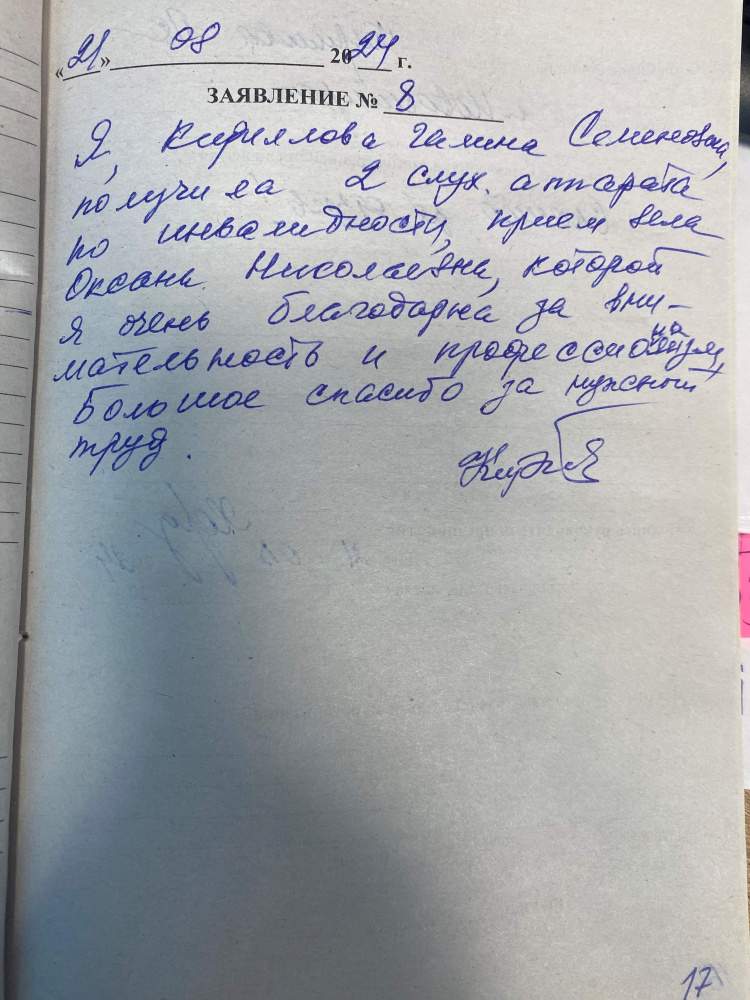 «21» 08 2024 г.
ЗАЯВЛЕНИЕ № 8
Я, Кириллова Галина Семеновна,
получила 2 слух. аппарата
по инвалидности, прием вела
Оксана Николаевна, которой
я очень благодарна за вни-
мательность и профессионализм,
Большое спасибо за нужный
труд.
17